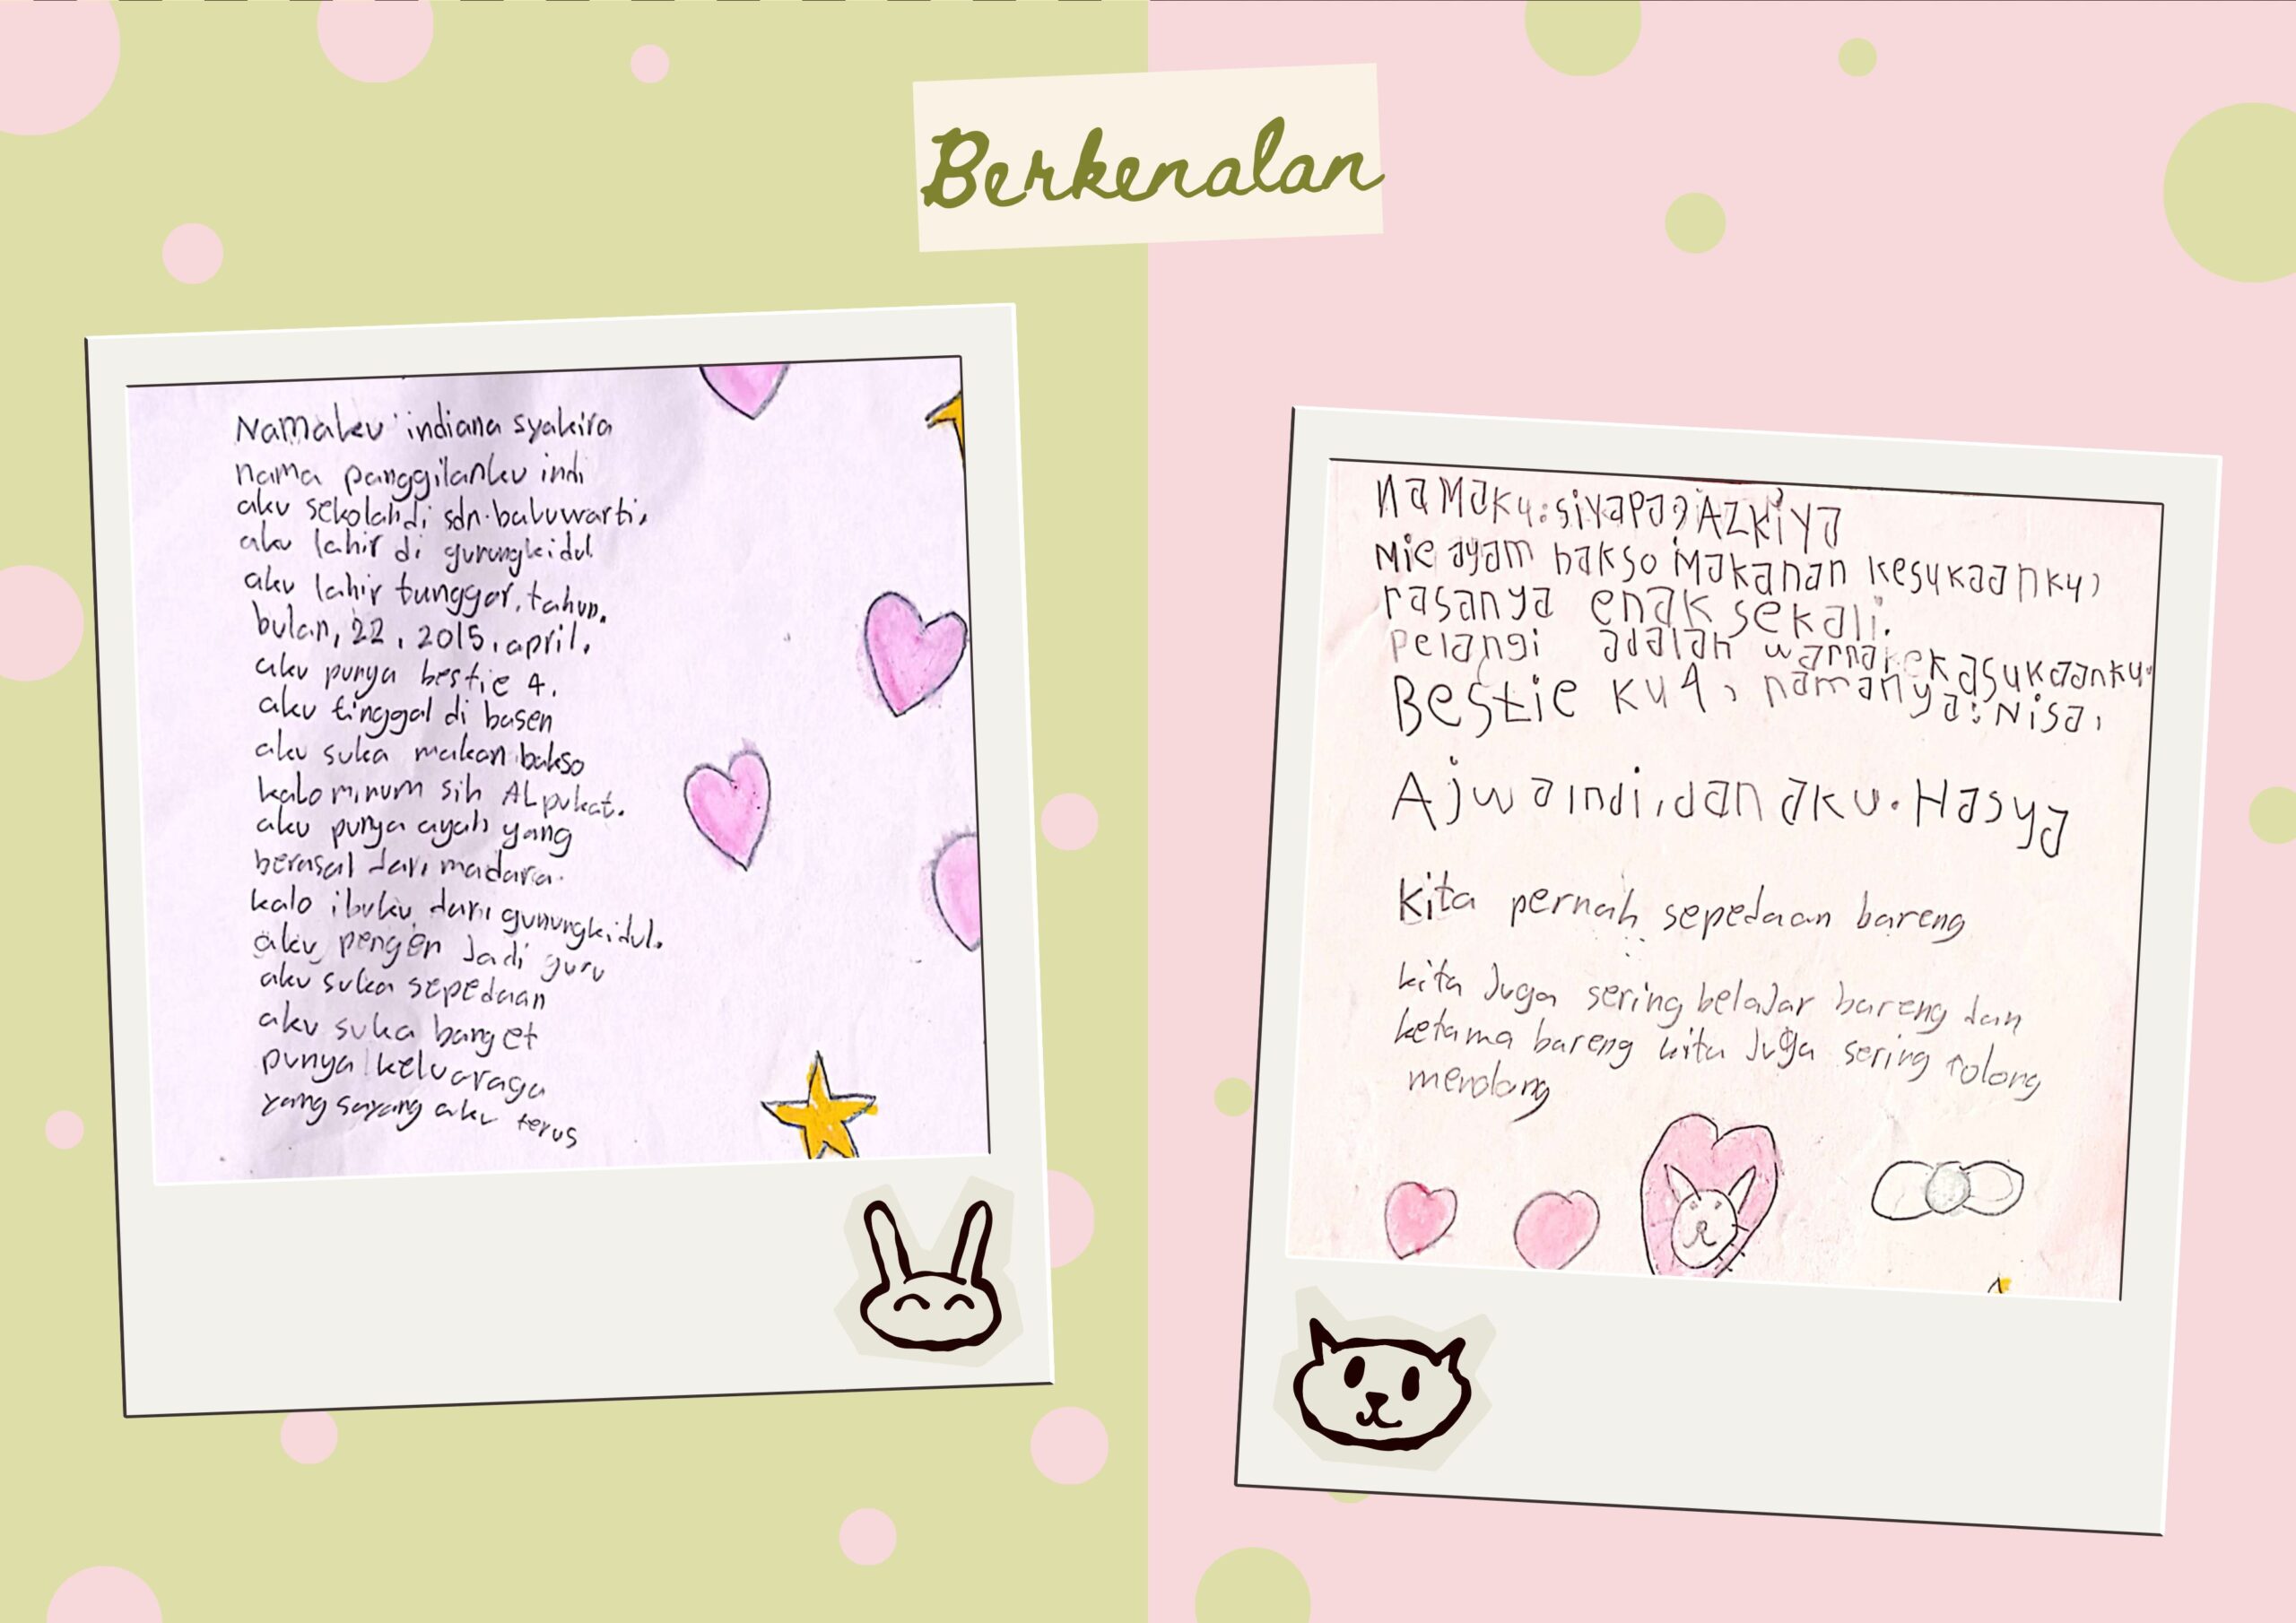 Berkenalan
Namaku indiana syakira
nama panggilanku indi
aku sekolah di sdn.baluwarti,
aku lahir di gunungkidul
aku lahir tunggar, tahun.
bulan, 22, 2015, april.
aku punya bestie 4.
aku tinggal di basen
aku suka makan bakso
kalo minum sih ALpukat.
aku punya ayah yang
berasal dari madara.
kalo ibuku dari gunungkidul.
aku pengen Jadi guru
aku suka sepedaan
aku suka banget
punya keluaraga
yang sayang aku terus
NaMaku:siyapa?AZKiYa
Mie ayam bakso Makanan kesukaanku,
rasanya enak sekali.
pelangi adalah warnakekasukaanku.
Bestie ku4, namanya:Nisa,
Ajwa indi,dan aku.Hasya
kita pernah sepedaan bareng
kita Juga sering belaJar bareng dan
ketama bareng kita Juga sering tolong
menolong